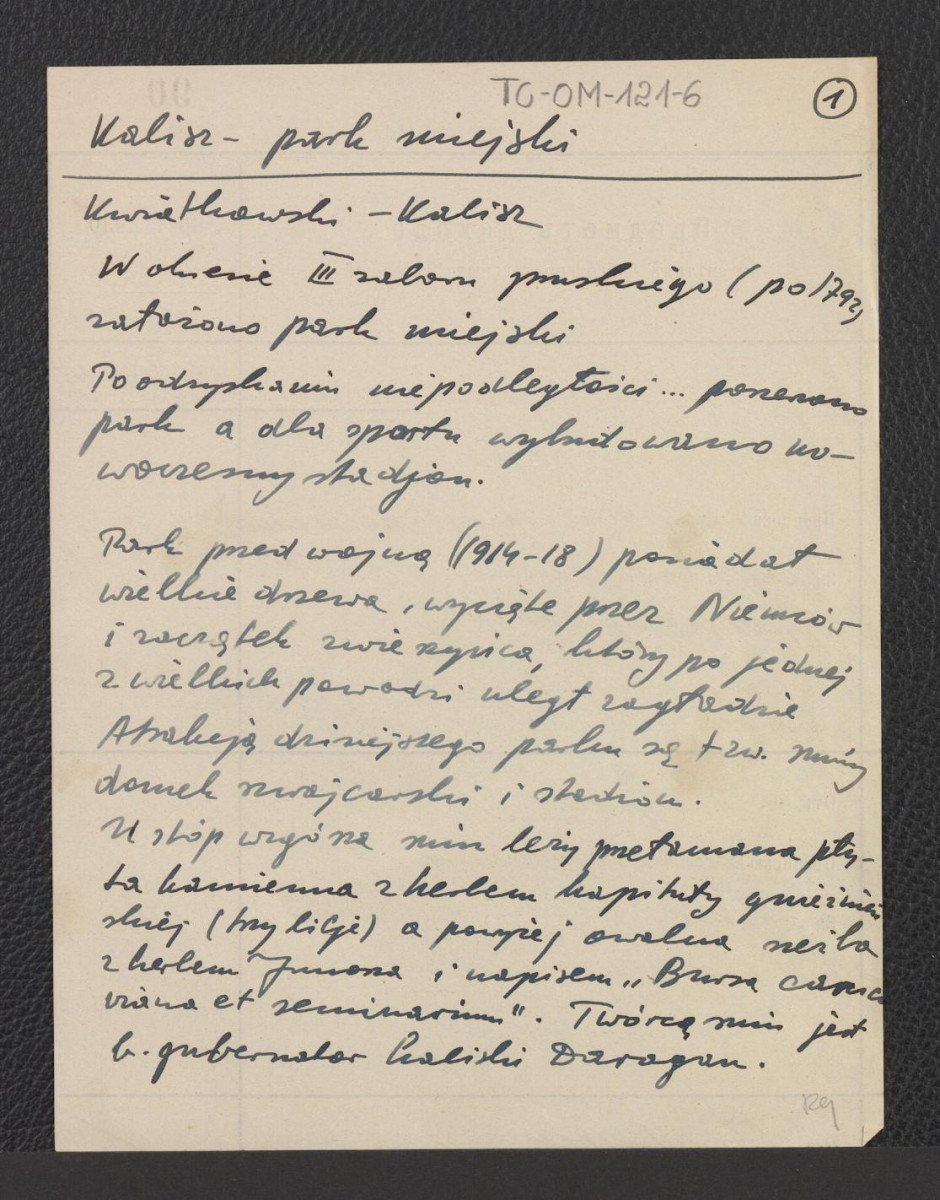 TG-OM-121-6
1
Kalisz - park miejski
Kwiatkowski - Kalisz
W okresie III zaboru pruskiego (po 1792)
założono park miejski
Po odzyskaniu niepodległości... poszerzono
park a dla sportu wybudowano no-
woczesny stadjon.
Park przed wojną (1914-18) posiadał
wielkie drzewa, wycięte przez Niemców
i zaczątek zwierzyńca, który po jednej
z wielkich powodzi uległ zagładzie
Atrakcją dzisiejszego parku są tzw. ruiny
domek szwajcarski i stadion.
U stóp wzgórza ruin leży przełamana pły-
ta kamienna z herbem kapituły gnieźnień
skiej (trzy lilje) a powyżej owalna rzeźba
z herbem Junosza i napisem „Bursa carnco
viana et seminarium". Twórcą ruin jest
b. gubernator kaliski Daragan.